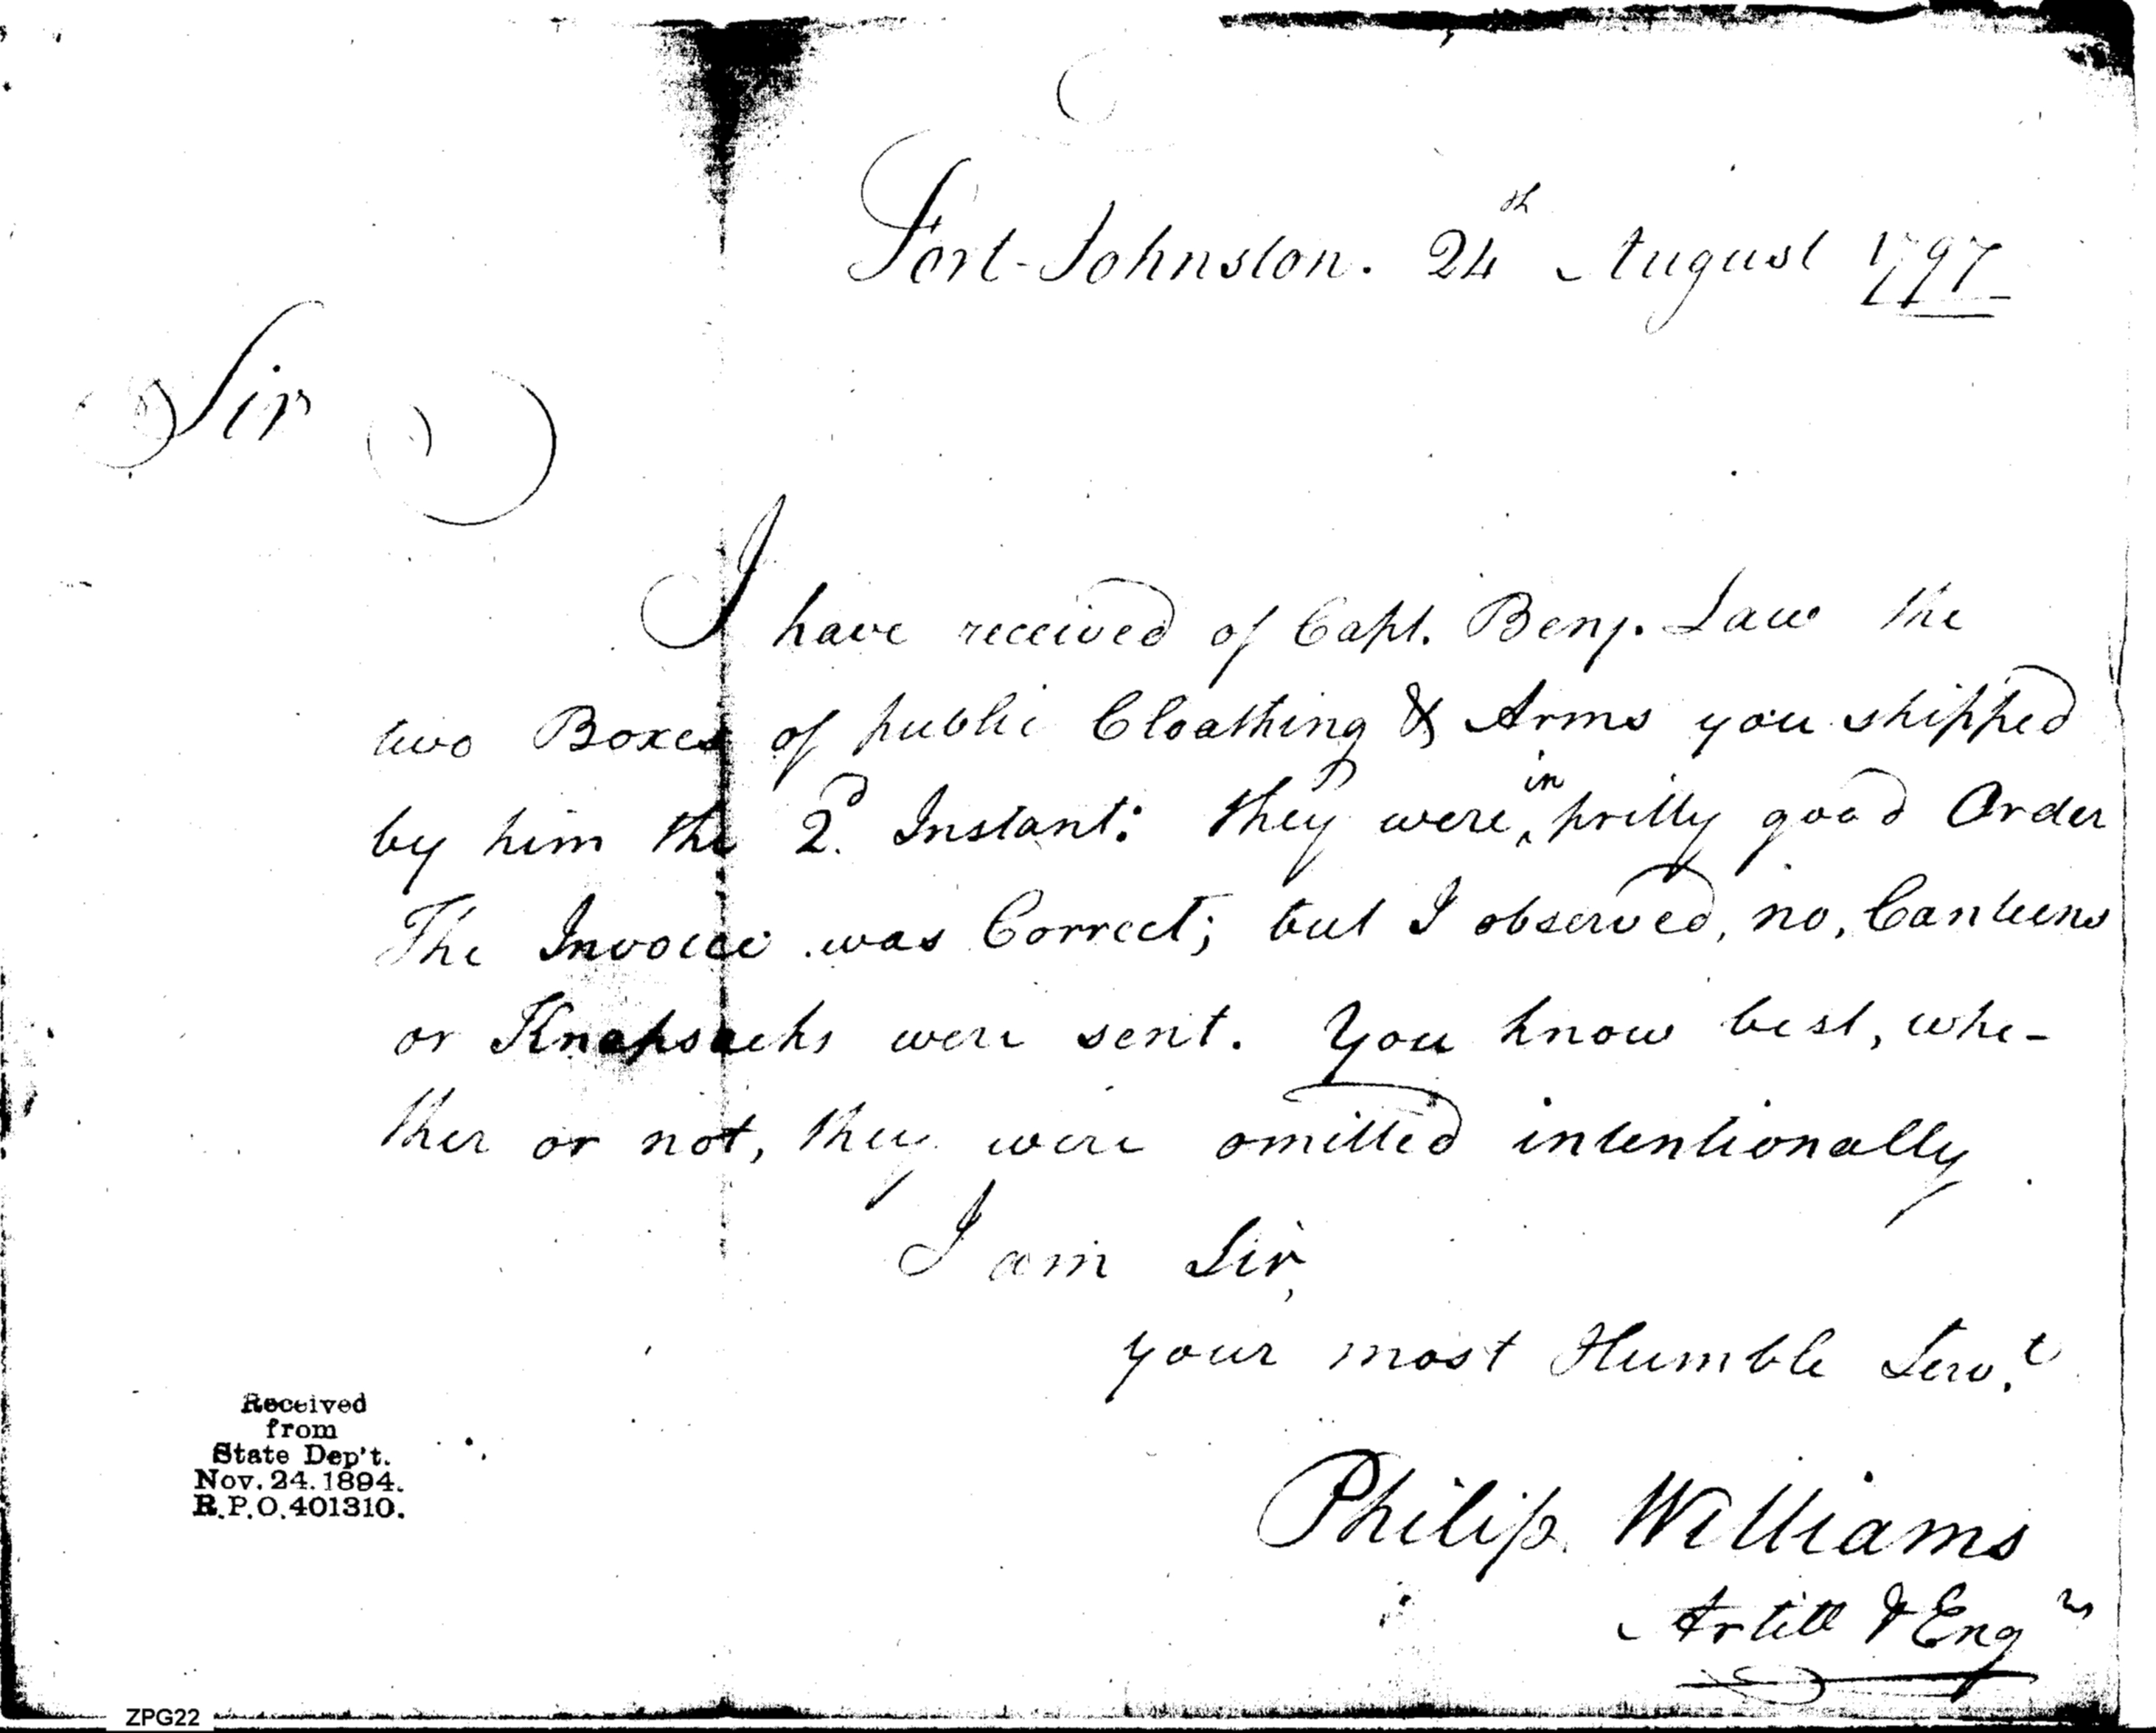 Fort-Johnston. 24th August 1797
Sir
I have received of Capt. Benj. Law the
two Boxes of public Cloathing & Arms you shipped
by him the 2.d Instant: they were in pritty good Order
The Invoice was Correct; but I observed, no, Canteens
or Knapsacks were sent. You know best, whe-
ther or not, they were omitted intentionally
I am Sir,
your most Humble Serv.t
Philip Williams
Artill & Engrs
Received
from
State Dep't.
Nov. 24. 1894.
R.P.O. 401310.
ZPG22